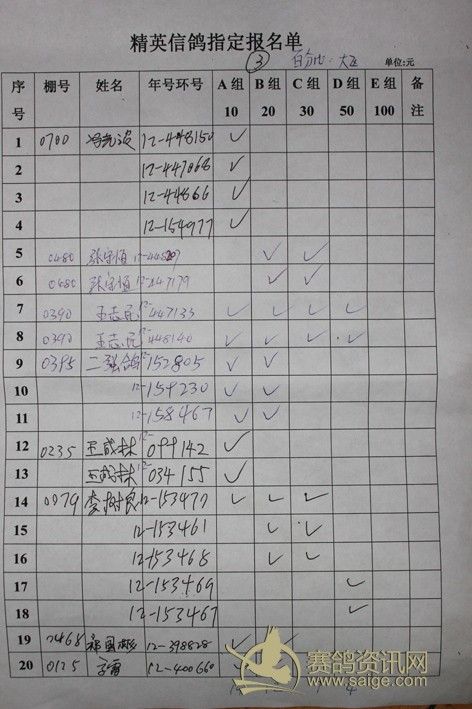 精英信鸽指定报名单
③ 百分比·大区 单位:元
序号 棚号 姓名 年号环号 A组10 B组20 C组30 D组50 E组100 备注
1 0700 12-448150 ✓
2 12-447068 ✓
3 12-44866 ✓
4 12-154977 ✓
5 0480 张守恒 ✓ ✓
6 0480 张守恒 12-447179 ✓ ✓
7 0390 王志民 12-447133 ✓ ✓ ✓ ✓
8 0390 王志民 12-448140 ✓ ✓ ✓ ✓
9 0395 二强鸽 12-152805 ✓ ✓
10 12-159230 ✓ ✓
11 12-158467 ✓ ✓
12 0235 王成林 12-099142 ✓
13 王成林 12-034155 ✓
14 0079 李树良 12-153477 ✓ ✓ ✓
15 12-153461 ✓ ✓
16 12-153468 ✓ ✓
17 12-153469 ✓
18 12-153467 ✓
19 12-398828 ✓ ✓
20 0125 12-400660 ✓
赛鸽资讯网
www.saige.com